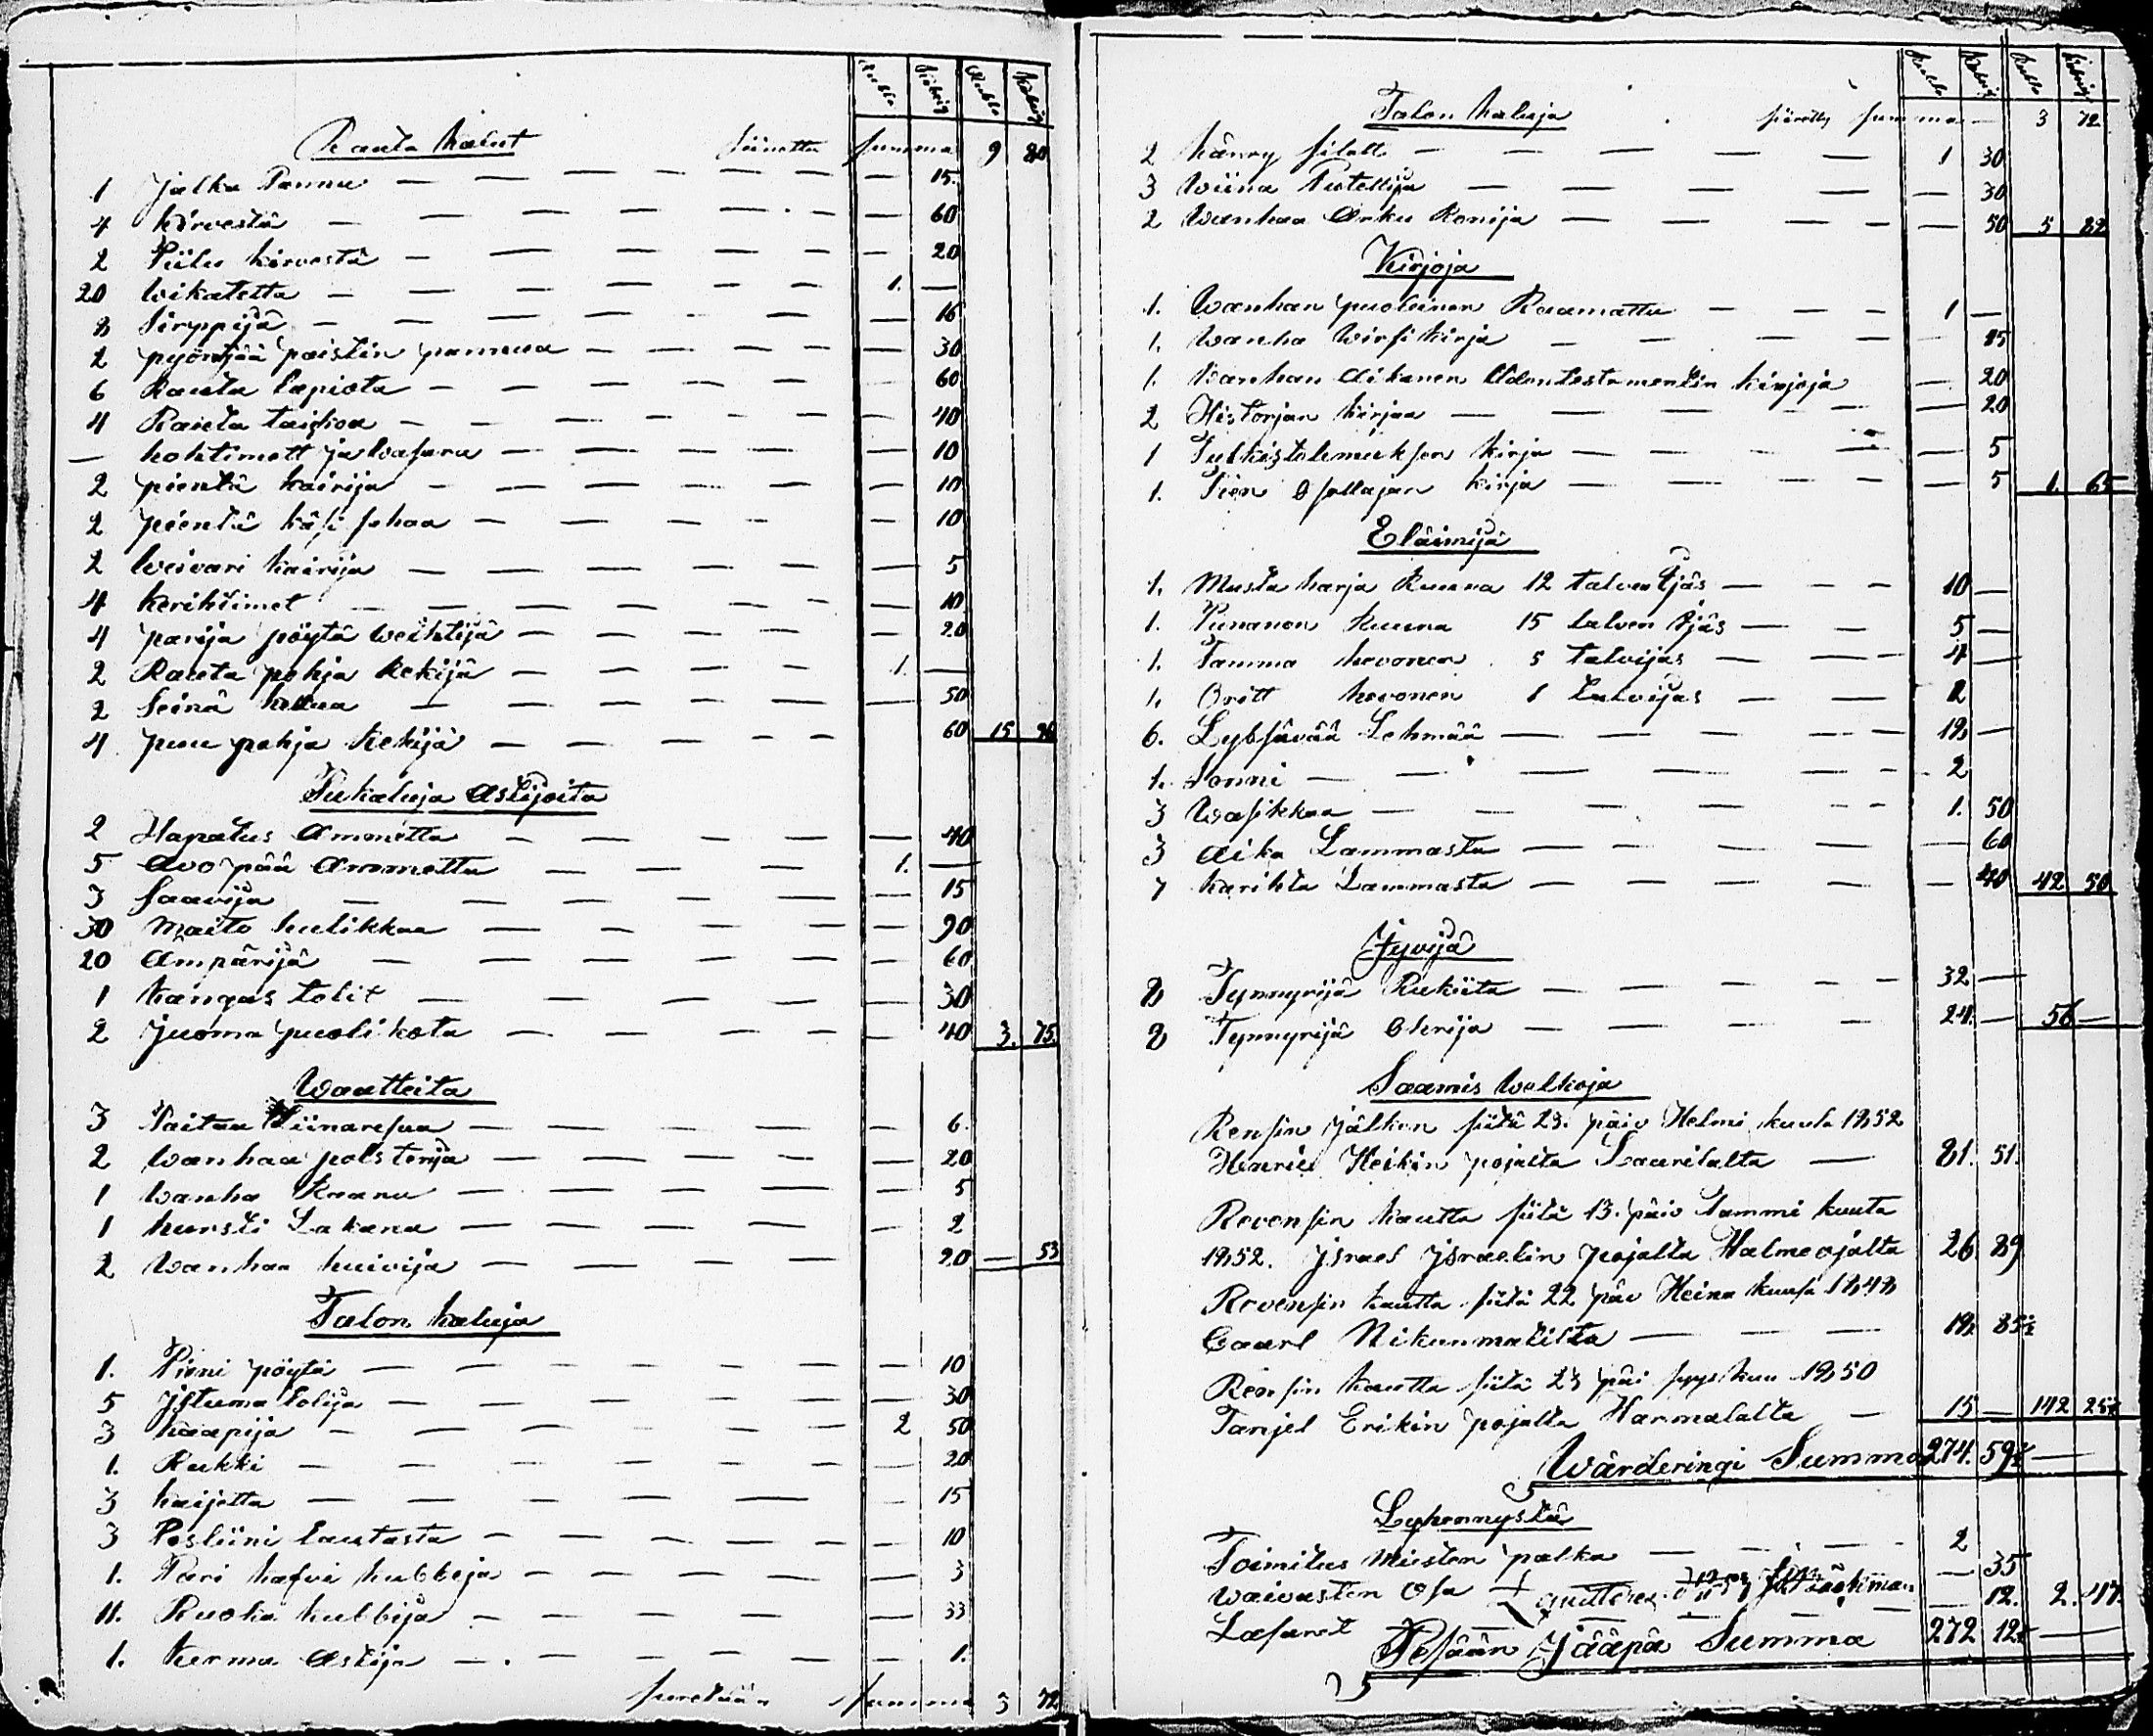 Rubla Kobeig Rubla Kobeig
Rauta kalut Siiretty summa 9 80
1 Jalka Pannu — — 15.
4 kirvestä — — 60
2 Piilu kirvestä — — 20
20 wikatetta — 1. —
8 Sirppijä — — 16
2 pyörijää paistin pannua — — 30
6 Rauta lapiota — — 60
4 Rauta taickoa — — 40
— hohtimett ja wasara — — 10
2 pientä kairija — — 10
2 pientä käsi sahaa — — 10
2 weivari kairija — — 5
4 kerihtimet — — 10
4 parija pöytä weihtijä — — 20
2 Rauta pohja Rekijä — 1. —
2 Seinä kellua — — 50
4 puu pohja Rekijä — — 60 15 96
Pukaluja Astijoita
2 Hapatus Ammetta — — 40
5 Avo pää Ammetta — 1. —
3 Saavija — — 15
30 Maito hulikkaa — — 90
20 Ampärijä — — 60
1 kangas tolit — — 30
2 Juoma puolikota — — 40 3. 75.
Waatteita
3 Paitaa — — 6.
2 wanhaa polsterija — — 20
1 wanha Raanu — — 5
1 hursti Lakana — — 2
2 wanhaa huivija — 20 — 53
Talon kaluja
1. Pieni pöytä — — 10
5 Istuma tolija — — 30
3 kaapija — 2 50
1. Rukki — — 20
3 kaijetta — — 15
3 Posliini lautasta — — 10
1. Pari kahvi kubbeja — — 3
11. Ruoka kubbija — — 33
1. kerma Astija — — 1.
summa 3 72
Rubla Kobeig Rubla Kobeig
Talon kaluja siiretty summa — 3 72
2 känny — 1 30
3 Wiina Putellija — — 30
2 Wanhaa Arku Ronija — — 50 5 82
Kirjoja
1. Wanhan puoleinen Raamattu — 1 —
1. wanha Wirsikirja — — 15
1. Wanhan Aikanen Udentestamentin kirjoja — 20
2 Historjan kirjaa — — 20
1 Tutkistelemuksen kirja — — 5
1. Tien Osottajan kirja — — 5 1. 65
Eläimijä
1. Musta harja Ruuna 12 talventjäs — 10 —
1. Punanen Ruuna 15 talven tjäs — 5 —
1. Tamma hevonen 5 talvijas — 4 —
1. Oritt hevonen 1 talvijas — 2
6. Lybsävää Lehmää — 18 —
1. Sonni — 2
3 Wasikkaa — 1. 50
3 Aika Lammasta — — 60
7 karihta Lammasta — — 40 42 50
Jyvijä
8 Tynnyrijä Rukiita — 32 —
8 Tynnyrijä Ohrija — 24. — 56 —
Saamis Welkoja
Rensin jälken siitä 23. päiv Helmi kuuta 1852
Heikin pojalta Laurilalta — 81. 51.
Revensin kautta siitä 13. päiv Tammi kuuta
1852. Israel Israelin pojalta Halmeojalta 26 89
Revensin kautta siitä 22 päiv Heina kuusa 1848
Caarl Nikunmatilta — 18. 85½
Revensin kautta siitä 23 päi syyskuu 1850
Tanjel Erikin pojalta Harmalalta — 15 — 142 25½
Wärderingi Summa 274. 59½ —
Lyhennystä
Toimitus Miesten palka — 2
waivasten Osa — — 35
Lasaret — — 12. 2. 47.
Pesään Jääpä Summa 272 12½ —